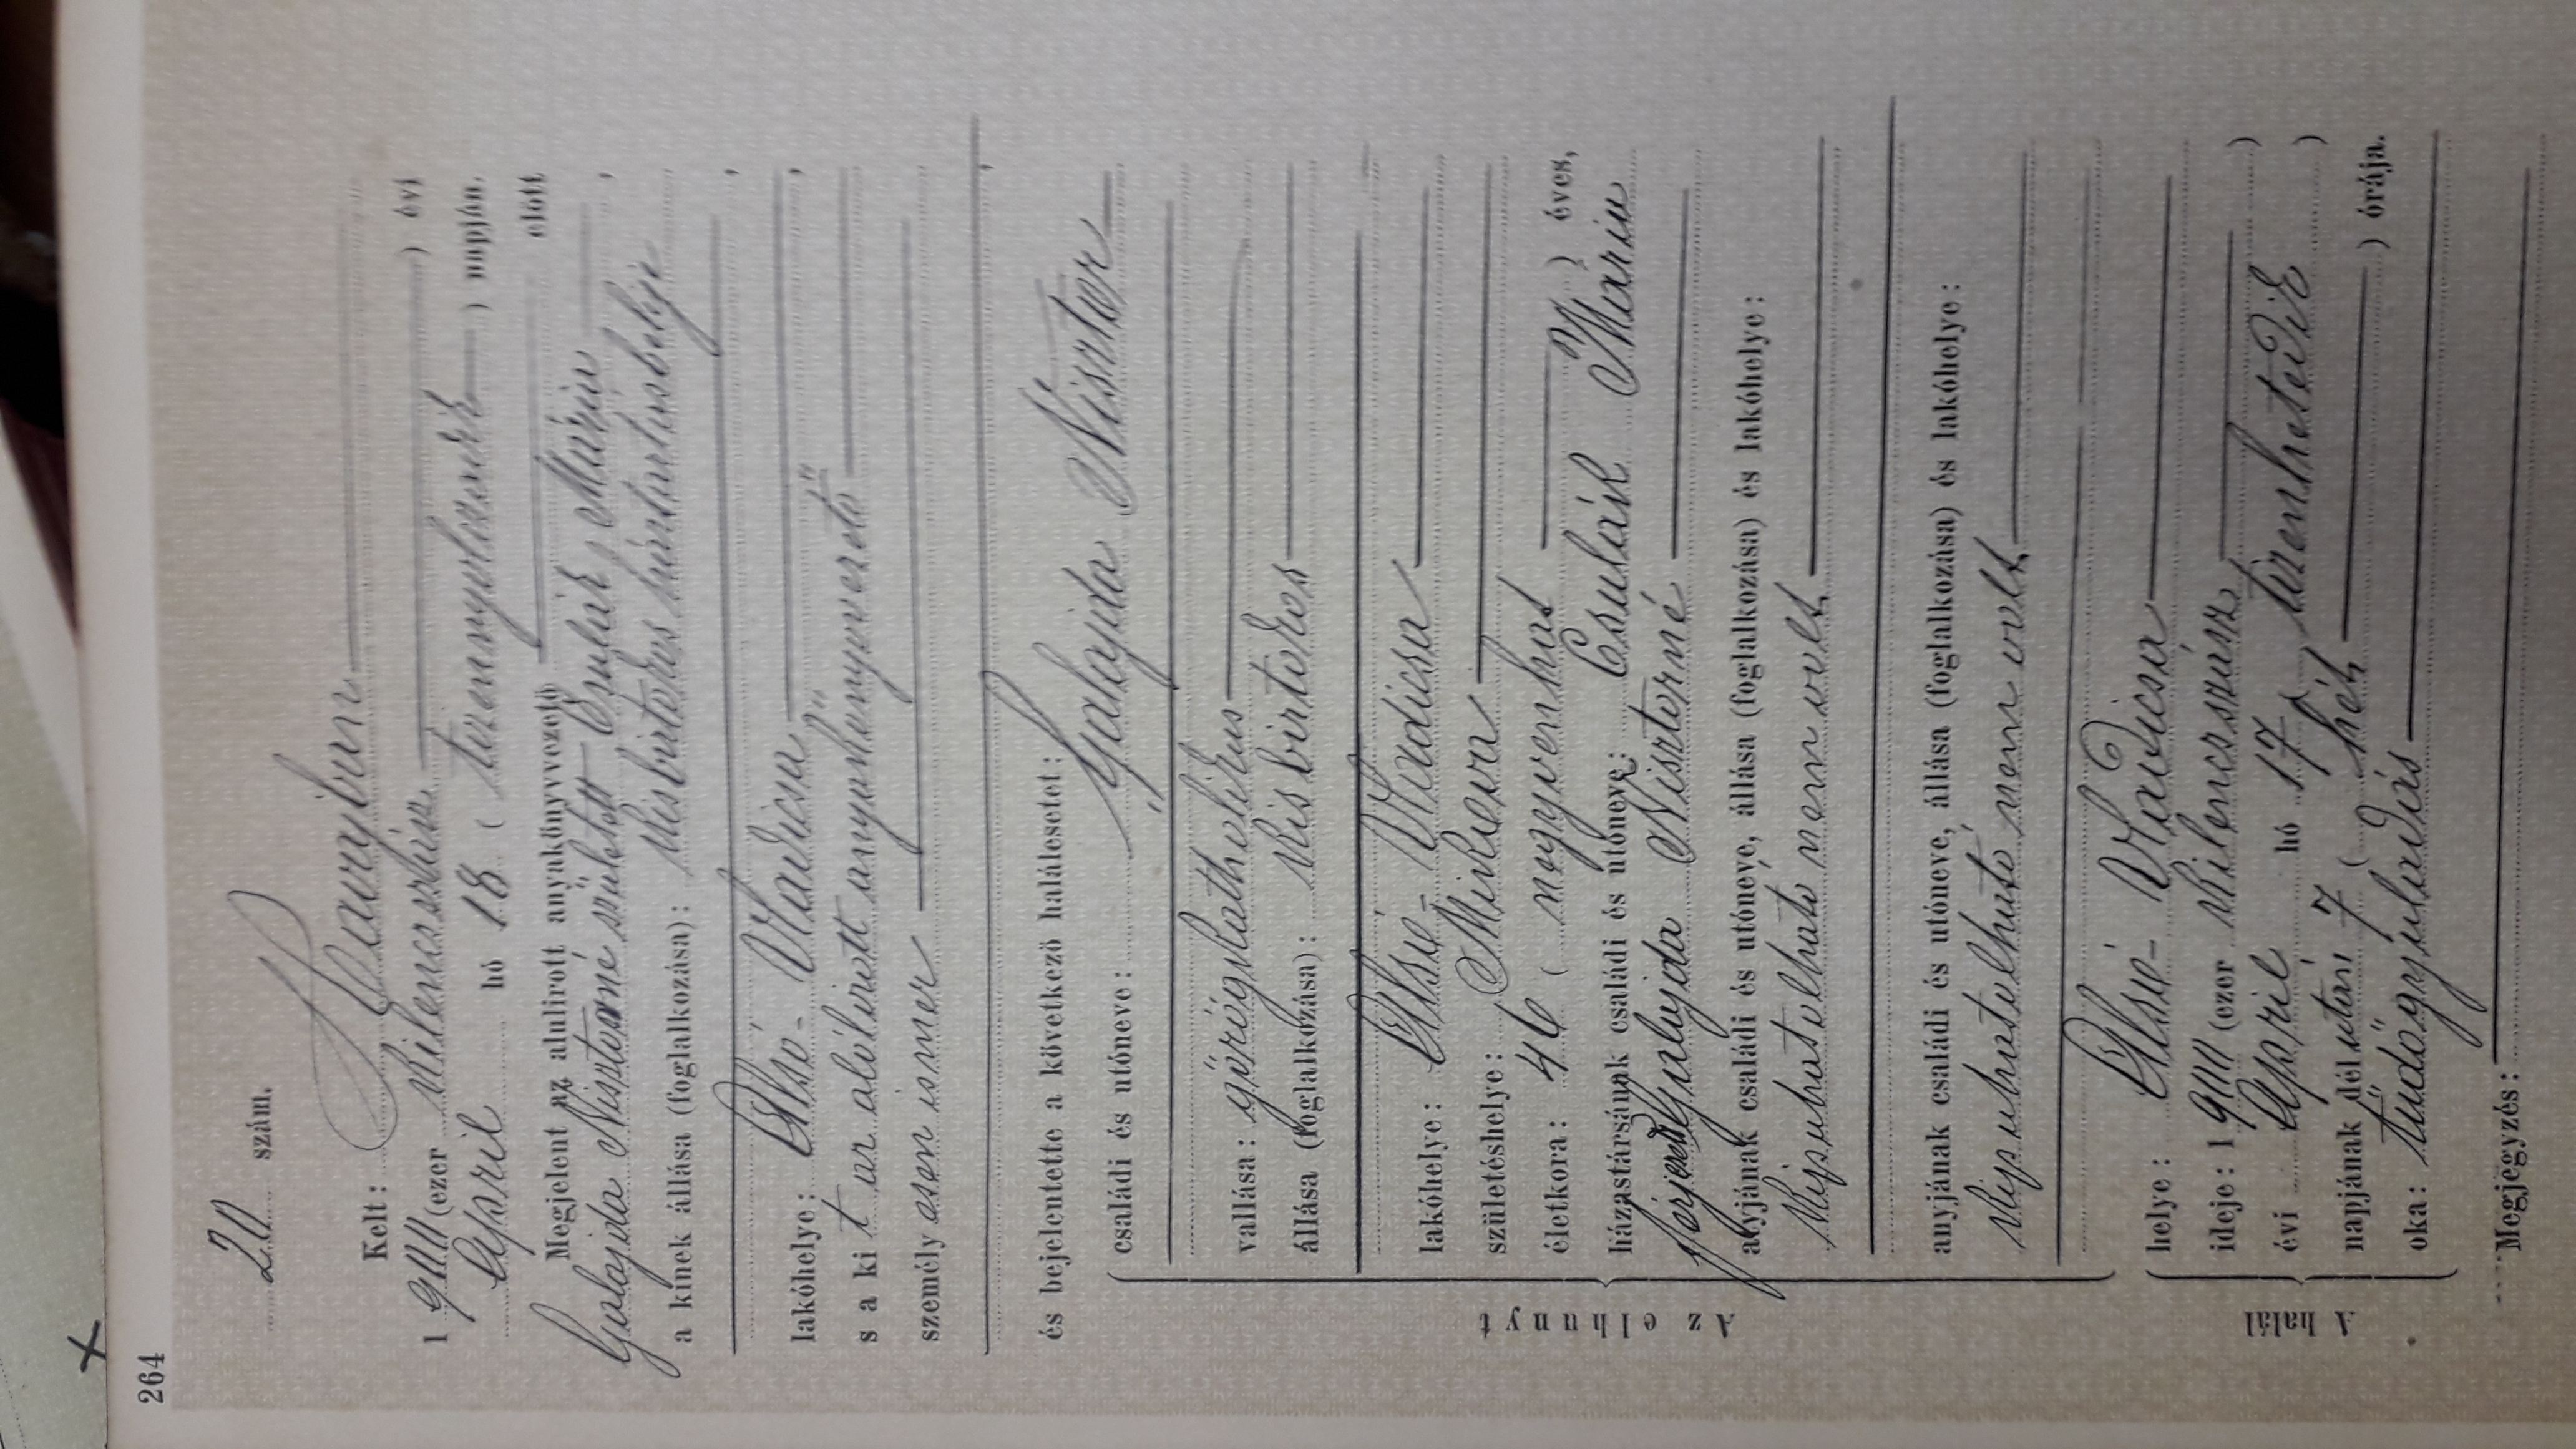 264
20 szám.
Kelt:
1900 (ezer kilenczszáz ) évi
April hó 18 ( tizennyolczadik ) napján.
Megjelent az alulirott anyakönyvvezető előtt
Gulajda Nisztorné született Csulák Mária,
a kinek állása (foglalkozása): kisbirtokos háztartásbelije
lakóhelye: Alsó-Vladicsa,
s a kit az alólirott anyakönyvvezető
személyesen ismer,
és bejelentette a következő halálesetet:
családi és utóneve: Gulajda Nisztor
vallása: görögkatholikus
állása (foglalkozása): kisbirtokos
lakóhelye: Alsó-Vladicsa
születéshelye: Mikova
életkora: 46 ( negyvenhat ) éves,
házastársának családi és utóneve: Csulák Mária
férjezett Gulajda Nisztorné
atyjának családi és utóneve, állása (foglalkozása) és lakóhelye:
kipuhatolható nem volt
anyjának családi és utóneve, állása (foglalkozása) és lakóhelye:
kipuhatolható nem volt
Az elhunyt
helye: Alsó-Vladicsa
ideje: 1900 (ezer kilenczszáz )
évi April hó 17 ( tizenhetedik )
napjának délutáni 7 ( hét ) órája.
oka: tüdőgyuladás
A halál
Megjegyzés: